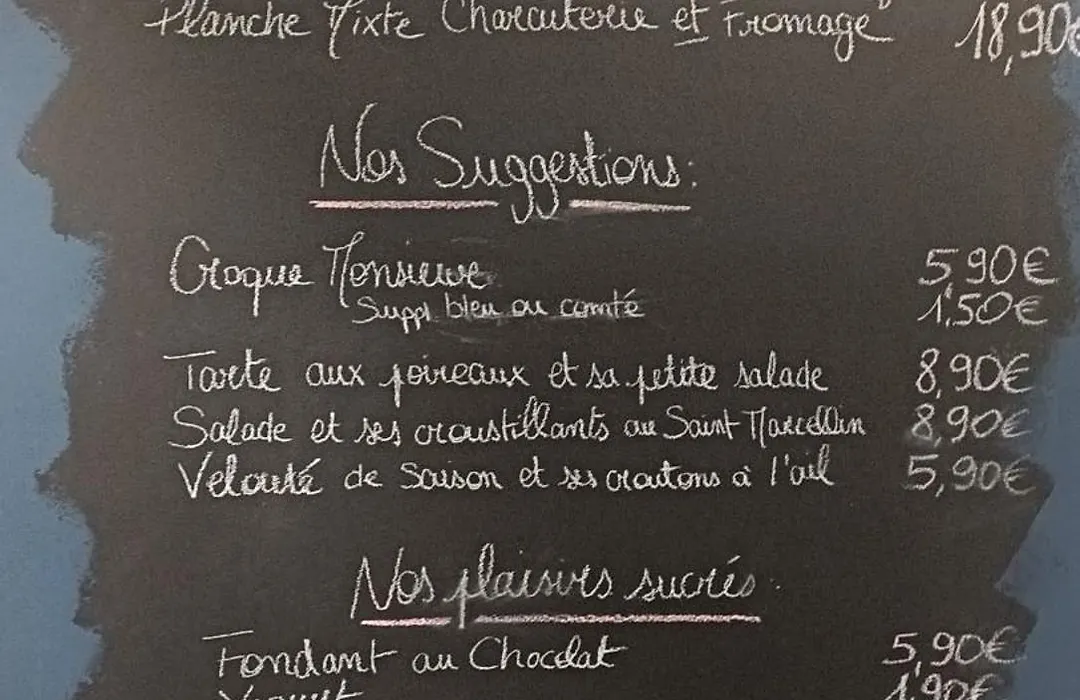 Planche Mixte Charcuterie et Fromage" 18,90€
Nos Suggestions:
Croque Monsieur 5,90€
Suppl bleu ou comté 1,50€
Tarte aux poireaux et sa petite salade 8,90€
Salade et ses croustillants au Saint Marcellin 8,90€
Velouté de saison et ses croutons à l'ail 5,90€
Nos plaisirs sucrés:
Fondant au Chocolat 5,90€
Yaourt 1,90€